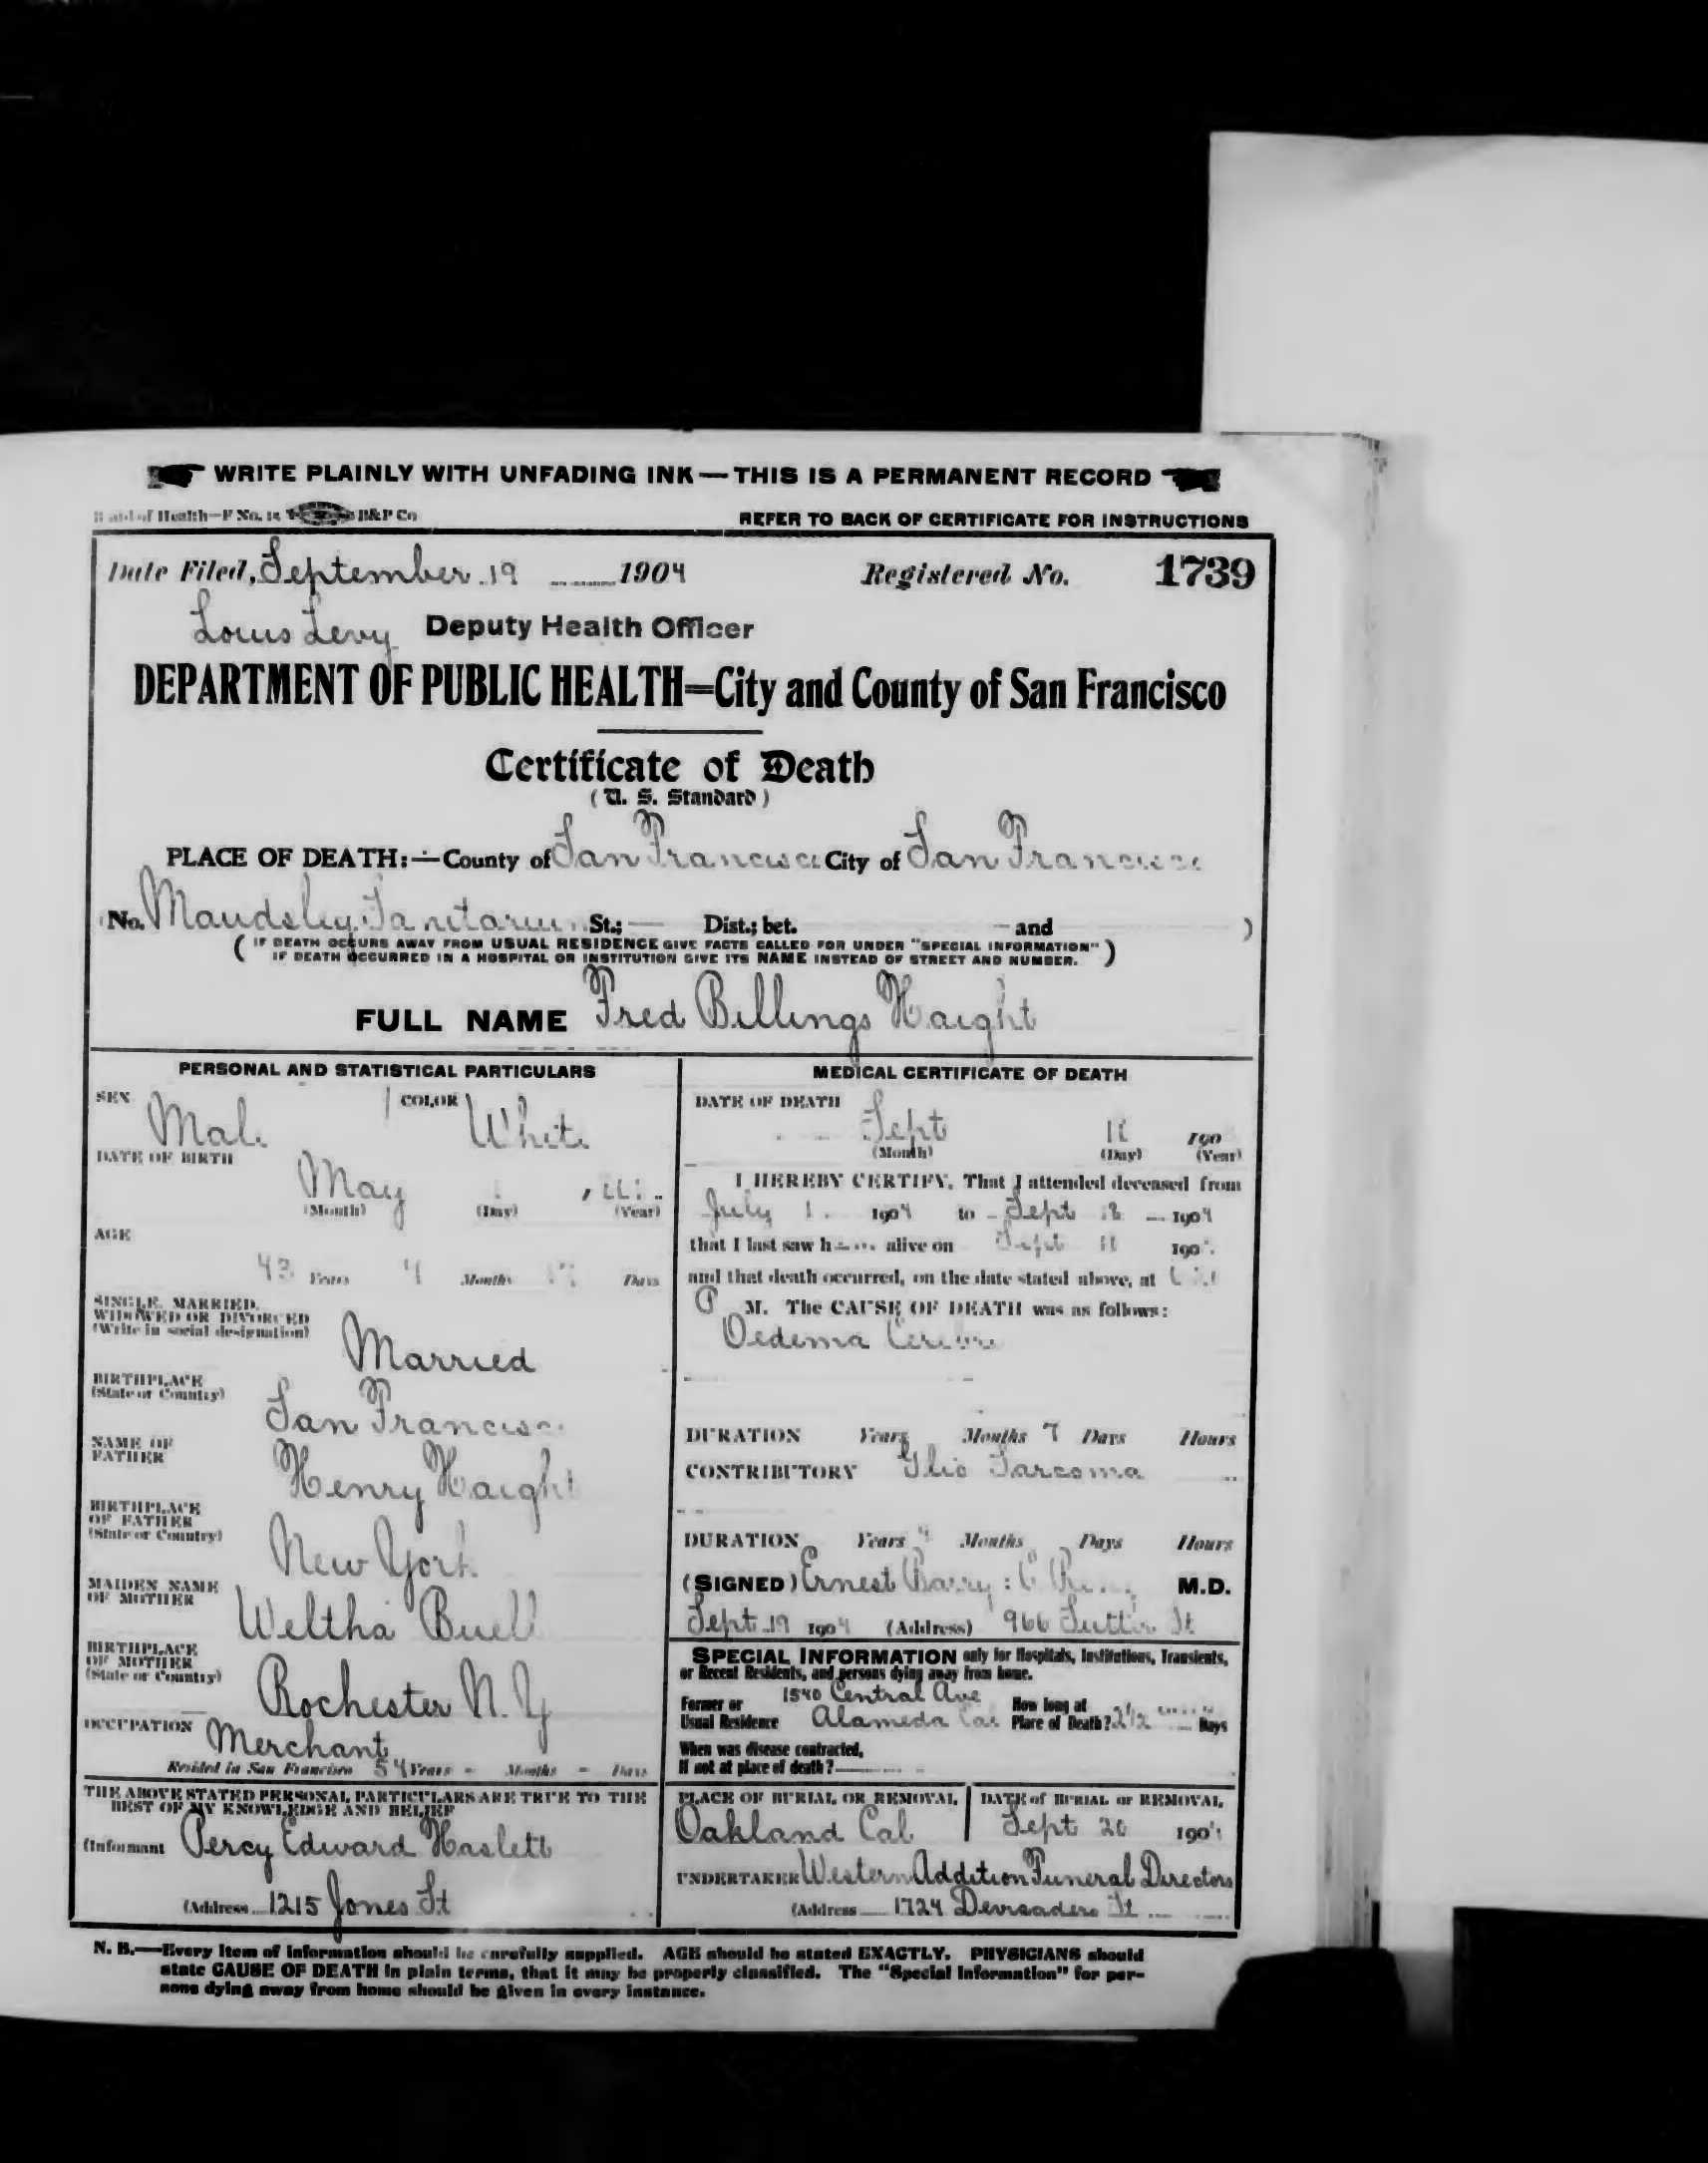 WRITE PLAINLY WITH UNFADING INK — THIS IS A PERMANENT RECORD
of Health—F No. 15 B&P Co
REFER TO BACK OF CERTIFICATE FOR INSTRUCTIONS
Date Filed, September 19 1904 Registered No. 1739
Louis Levy Deputy Health Officer
DEPARTMENT OF PUBLIC HEALTH=City and County of San Francisco
Certificate of Death
(U. S. Standard)
PLACE OF DEATH:—County of San Francisco City of San Francisco
(No. Maudsley Sanitarium St.; — Dist.; bet. and )
( IF DEATH OCCURS AWAY FROM USUAL RESIDENCE GIVE FACTS CALLED FOR UNDER "SPECIAL INFORMATION"
IF DEATH OCCURRED IN A HOSPITAL OR INSTITUTION GIVE ITS NAME INSTEAD OF STREET AND NUMBER. )
FULL NAME Fred Billings Haight
PERSONAL AND STATISTICAL PARTICULARS
SEX Male COLOR White
DATE OF BIRTH
May
(Month) (Day) (Year)
AGE
43 Years 4 Months Days
SINGLE, MARRIED,
WIDOWED OR DIVORCED
(Write in social designation)
Married
BIRTHPLACE
(State or Country)
San Francisco
NAME OF
FATHER
Henry Haight
BIRTHPLACE
OF FATHER
(State or Country)
New York
MAIDEN NAME
OF MOTHER
Weltha Buell
BIRTHPLACE
OF MOTHER
(State or Country)
Rochester N.Y
OCCUPATION Merchant
Resided in San Francisco 54 Years - Months - Days
THE ABOVE STATED PERSONAL PARTICULARS ARE TRUE TO THE
BEST OF MY KNOWLEDGE AND BELIEF
(Informant Percy Edward Haslett
(Address 1215 Jones St
MEDICAL CERTIFICATE OF DEATH
DATE OF DEATH
Sept 190
(Month) (Day) (Year)
I HEREBY CERTIFY, That I attended deceased from
July 1 1904 to Sept 18 1904
that I last saw h alive on Sept 190
and that death occurred, on the date stated above, at
P M. The CAUSE OF DEATH was as follows:
Oedema
DURATION Years Months 7 Days Hours
CONTRIBUTORY Glio Sarcoma
DURATION Years 4 Months Days Hours
(SIGNED) Ernest M.D.
Sept 19 1904 (Address) 966 Sutter St
SPECIAL INFORMATION only for Hospitals, Institutions, Transients,
or Recent Residents, and persons dying away from home.
Former or
Usual Residence 1540 Central Ave
Alameda Cal
How long at
Place of Death? 2 1/2 Days
When was disease contracted,
If not at place of death?
PLACE OF BURIAL OR REMOVAL
Oakland Cal
DATE of BURIAL or REMOVAL
Sept 20 1904
UNDERTAKER Western Addition Funeral Directors
(Address 1724 Devisadero St
N. B.—Every item of information should be carefully supplied. AGE should be stated EXACTLY. PHYSICIANS should
state CAUSE OF DEATH in plain terms, that it may be properly classified. The "Special Information" for per-
sons dying away from home should be given in every instance.